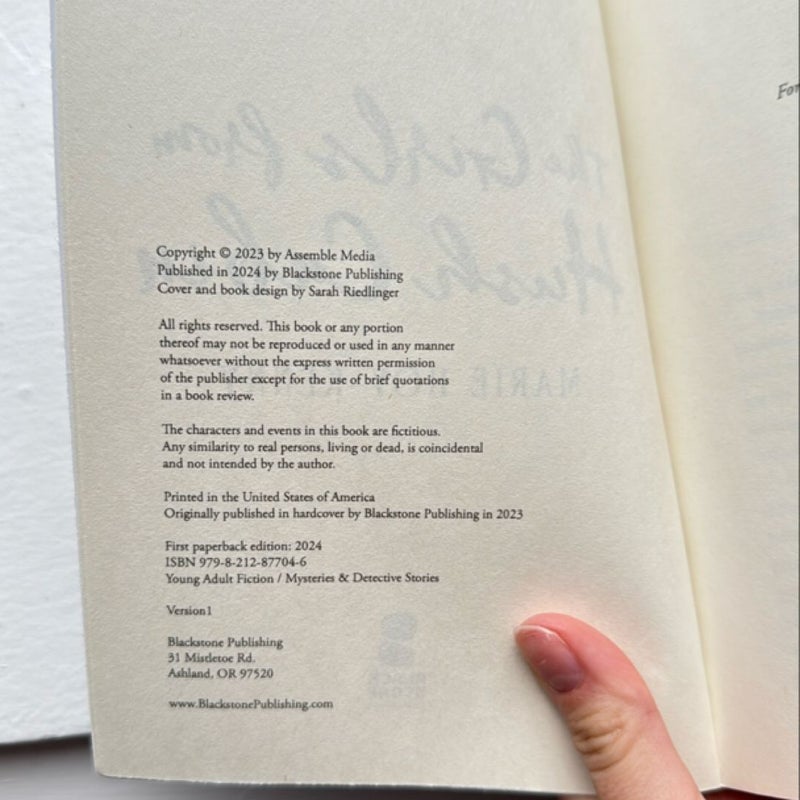 Copyright © 2023 by Assemble Media
Published in 2024 by Blackstone Publishing
Cover and book design by Sarah Riedlinger
All rights reserved. This book or any portion
thereof may not be reproduced or used in any manner
whatsoever without the express written permission
of the publisher except for the use of brief quotations
in a book review.
The characters and events in this book are fictitious.
Any similarity to real persons, living or dead, is coincidental
and not intended by the author.
Printed in the United States of America
Originally published in hardcover by Blackstone Publishing in 2023
First paperback edition: 2024
ISBN 979-8-212-87704-6
Young Adult Fiction / Mysteries & Detective Stories
Version1
Blackstone Publishing
31 Mistletoe Rd.
Ashland, OR 97520
www.BlackstonePublishing.com
The Girls from
Hush
MARIE